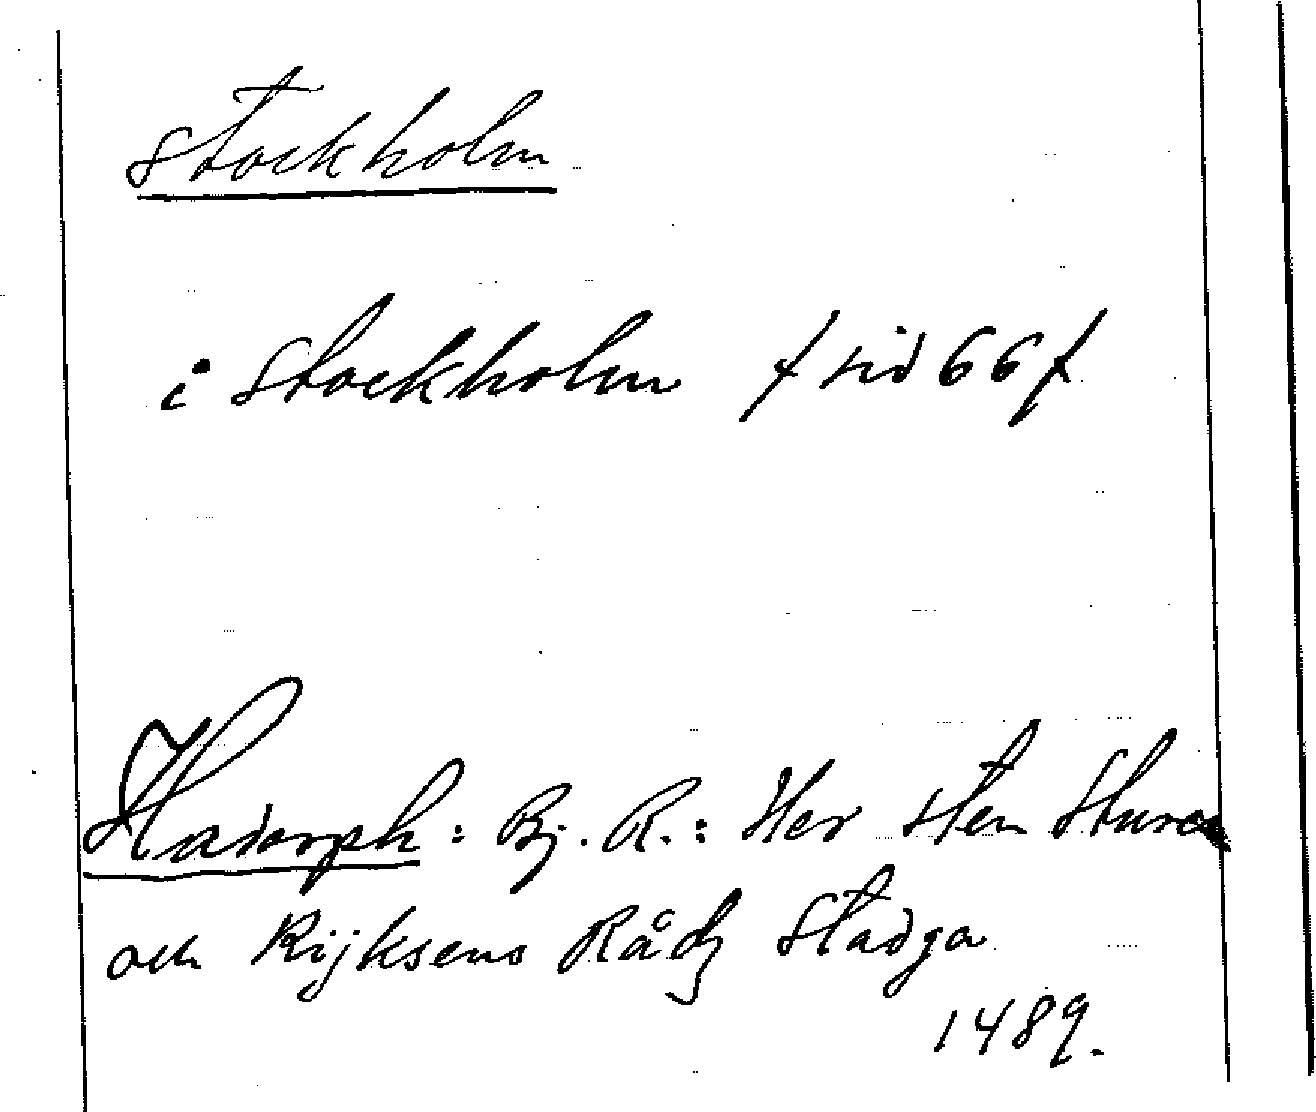 Stockholm
i Stockholm / sid 66 /
Hadorph: Bj. R.: Her Sten Sture
och Rijksens Rådz Stadga
1489.